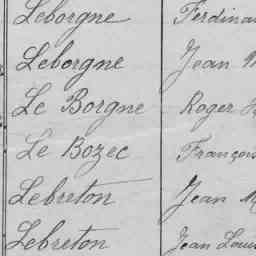 Leborgne Ferdina
Leborgne Jean
Le Borgne Roger
Le Bozec François
Lebreton Jean
Lebreton Jean Loui